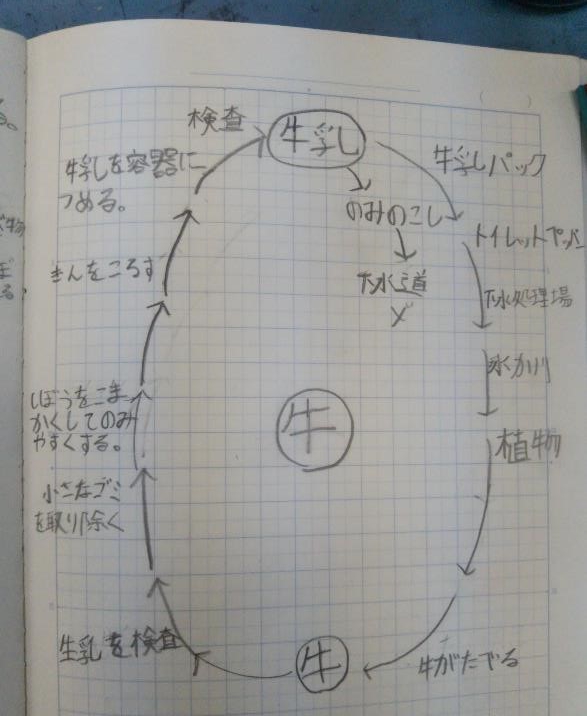 検査
牛乳
牛乳パック
牛乳を容器に
つめる。
のみのこし
トイレットペーパー
きんをころす
下水道
下水処理場
水が川
しぼうをこま
かくしてのみ
やすくする。
牛
植物
小さなゴミ
を取り除く
生乳を検査
牛
牛がたべる